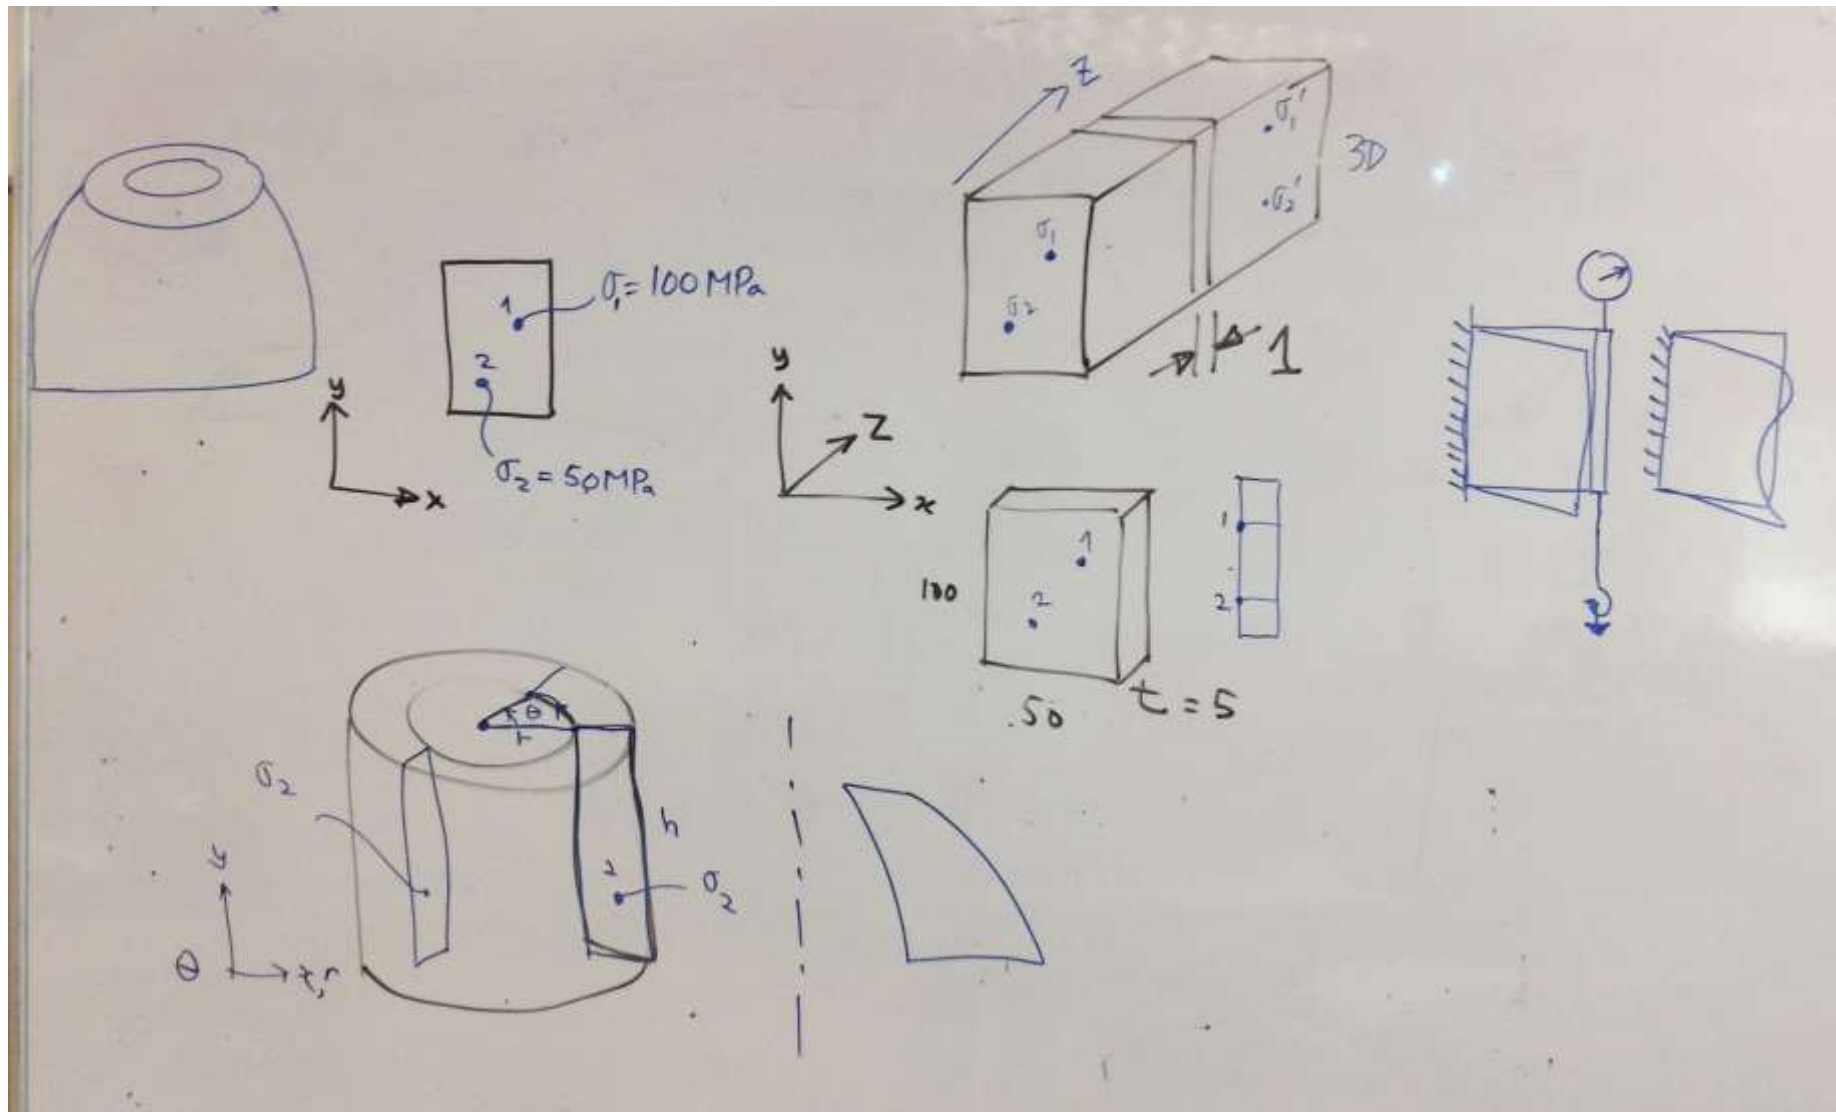 Z
σ₁'
3D
σ₂'
σ₁
σ₂
1
1
σ₁ = 100 MPa
2
σ₂ = 50 MPa
y
x
y
Z
x
1
2
100
50
t = 5
1
2
θ
r
h
σ₂
2
σ₂
y
θ
r